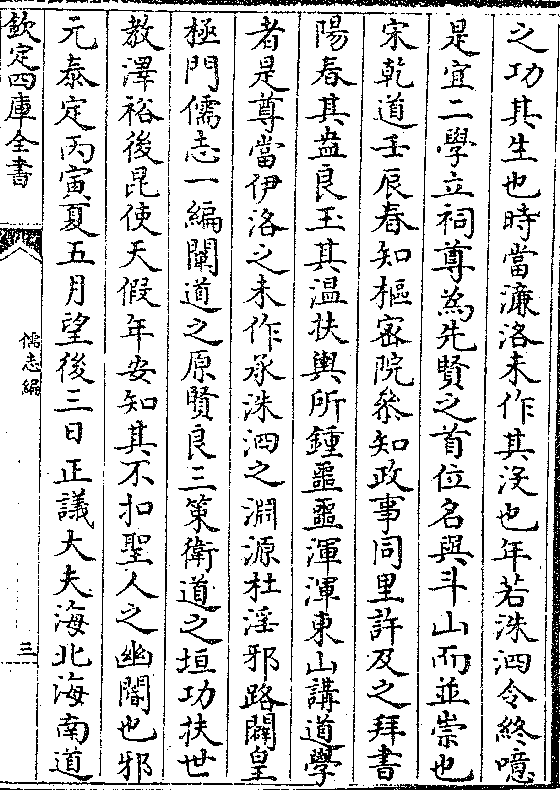 之功其生也時當濂洛未作其沒也年若洙泗令終噫
是宜二學立祠尊為先賢之首位名與斗山而並崇也
宋乾道壬辰春知樞密院叅知政事同里許及之拜書
陽春其盎良玉其温扶輿所鍾噩噩渾渾東山講道學
者是尊當伊洛之未作承洙泗之淵源杜淫邪路闢皇
極門儒志一編闡道之原賢良三策衛道之垣功扶世
教澤裕後昆使天假年安知其不扣聖人之幽閽也邪
元泰定丙寅夏五月望後三日正議大夫海北海南道
欽定四庫全書
儒志編
三